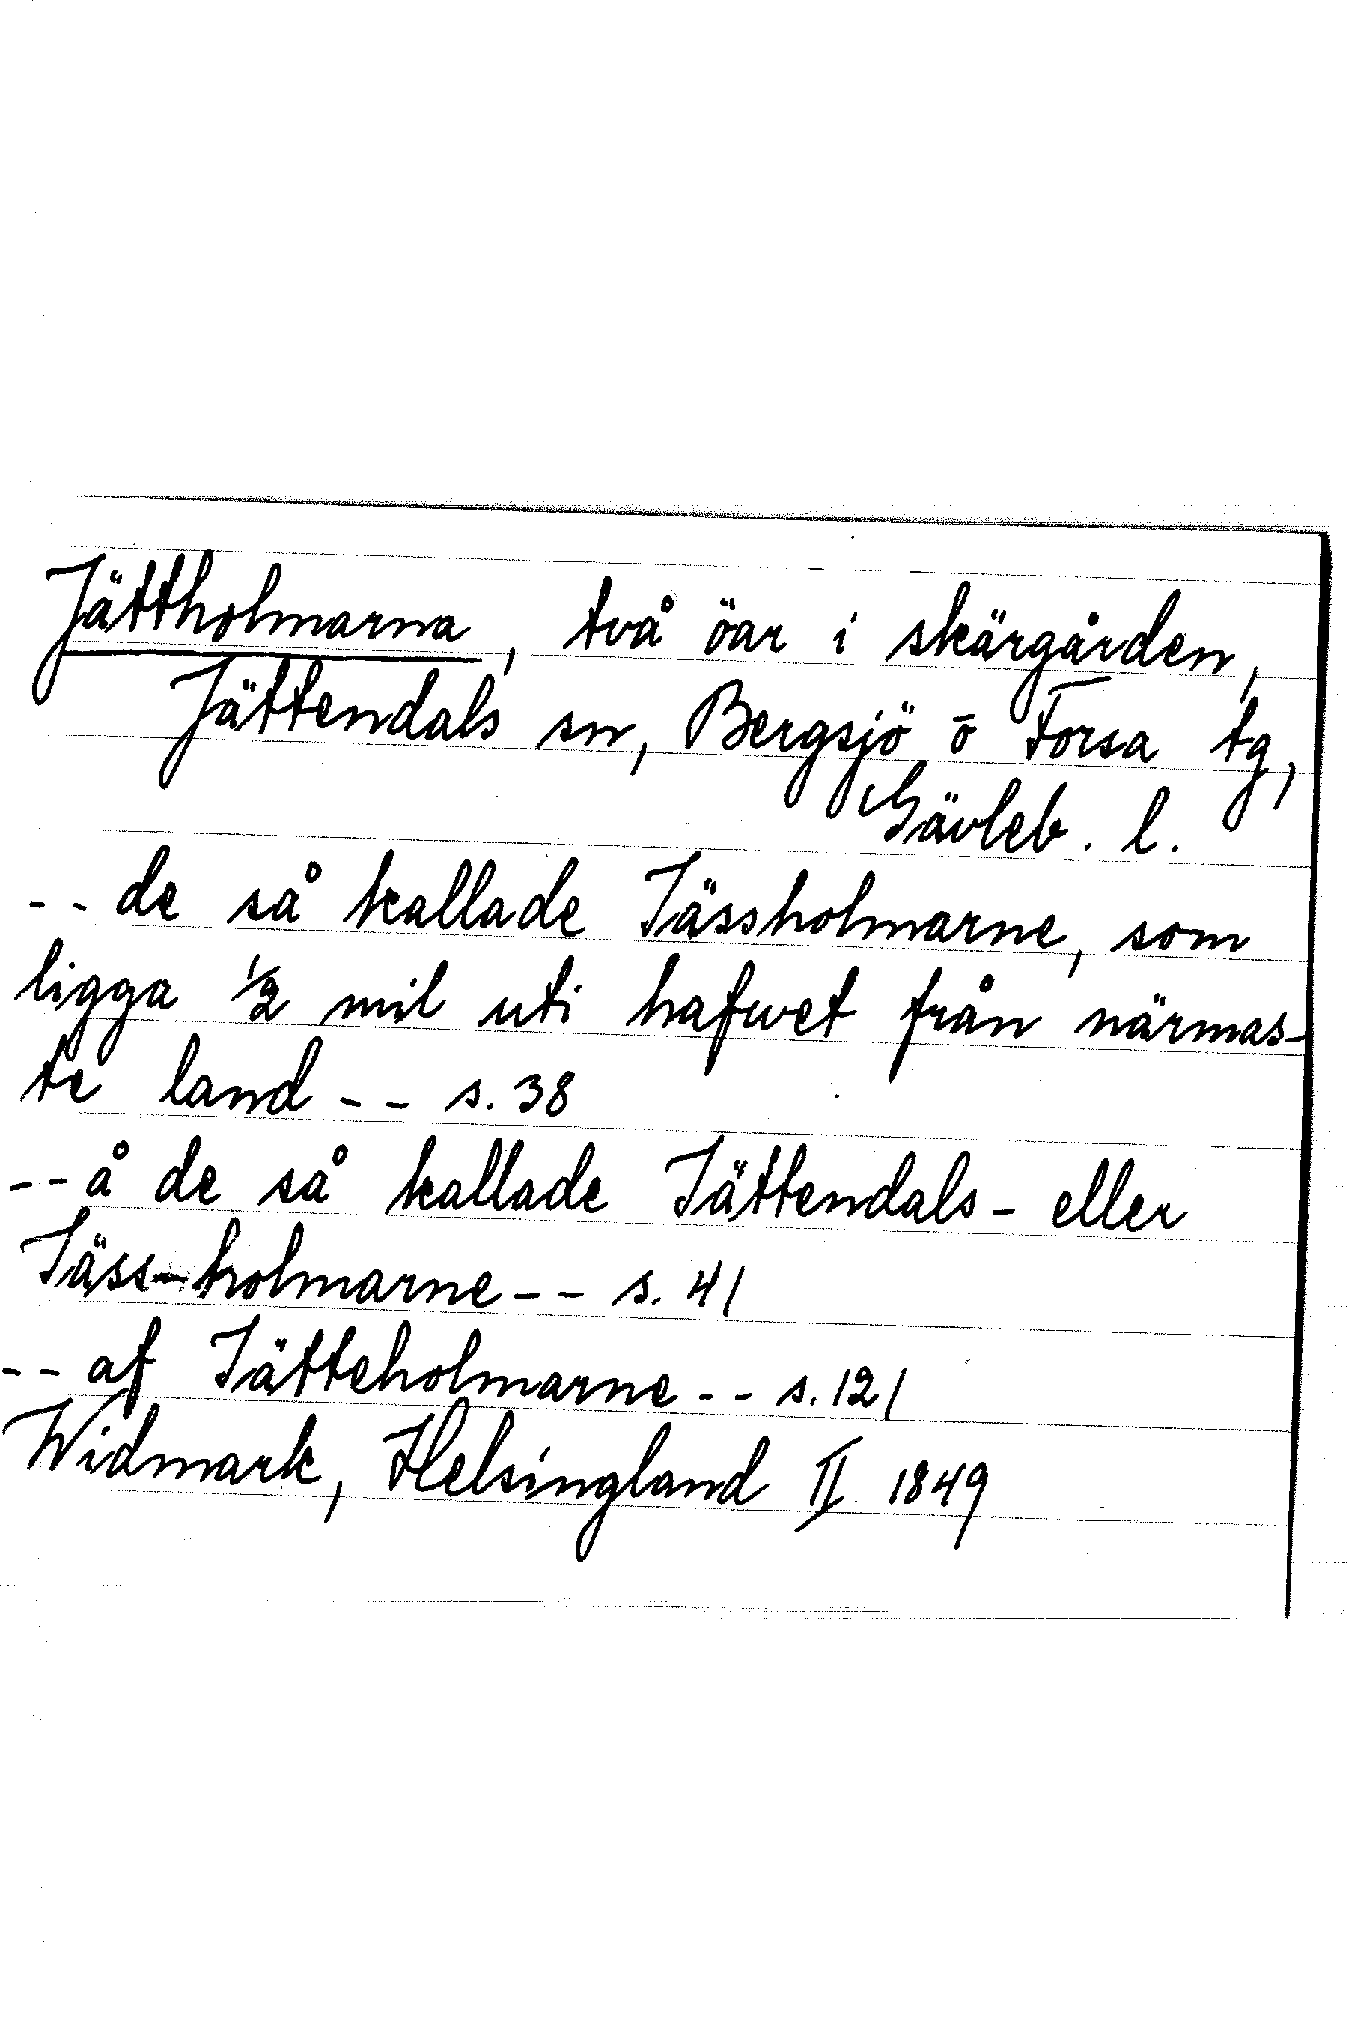 Jättholmarna, två öar i skärgården,
Jättendals sn, Bergsjö o Forsa tg,
Gävleb. l.
-- de så kallade Iässholmarne, som
ligga 1/2 mil uti hafwet från närmas-
te land -- s. 38
-- å de så kallade Iättendals- eller
Iäss-holmarne -- s. 41
-- af Iätteholmarne -- s. 121
Widmark, Helsingland II 1849